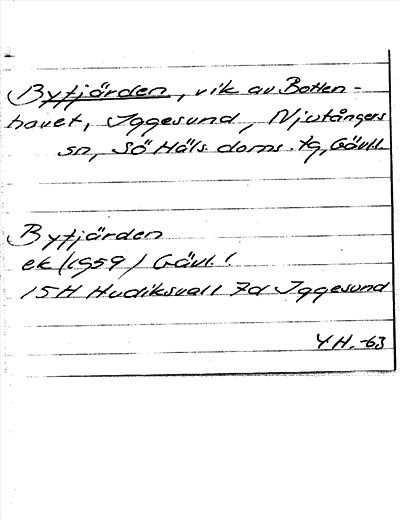 Byfjärden, vik av Botten-
havet, Iggesund, Njutångers
sn, Sö Häls. doms. tg, Gävl.
Byfjärden
ek (1959) Gävl. l
15H Hudiksvall 7d Iggesund
YH.-63